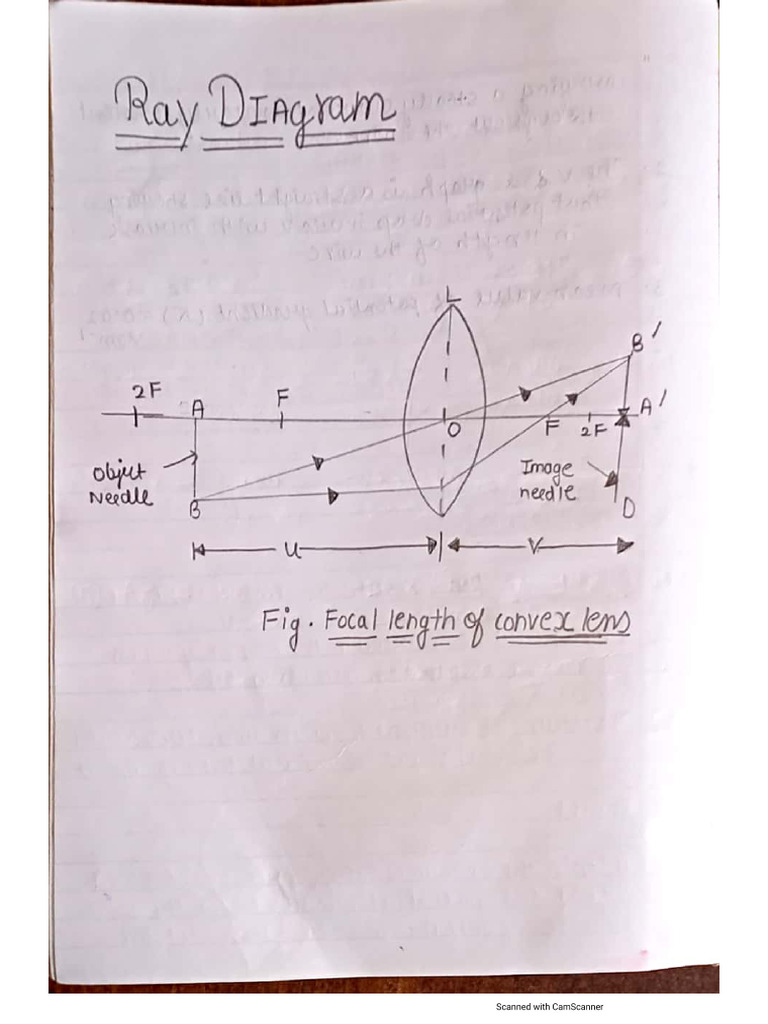 Ray DIAgram
L
B'
2F
A
F
A'
O
F
2F
Object
Needle
Image
needle
B
D
u
v
Fig. Focal length of convex lens
Scanned with CamScanner